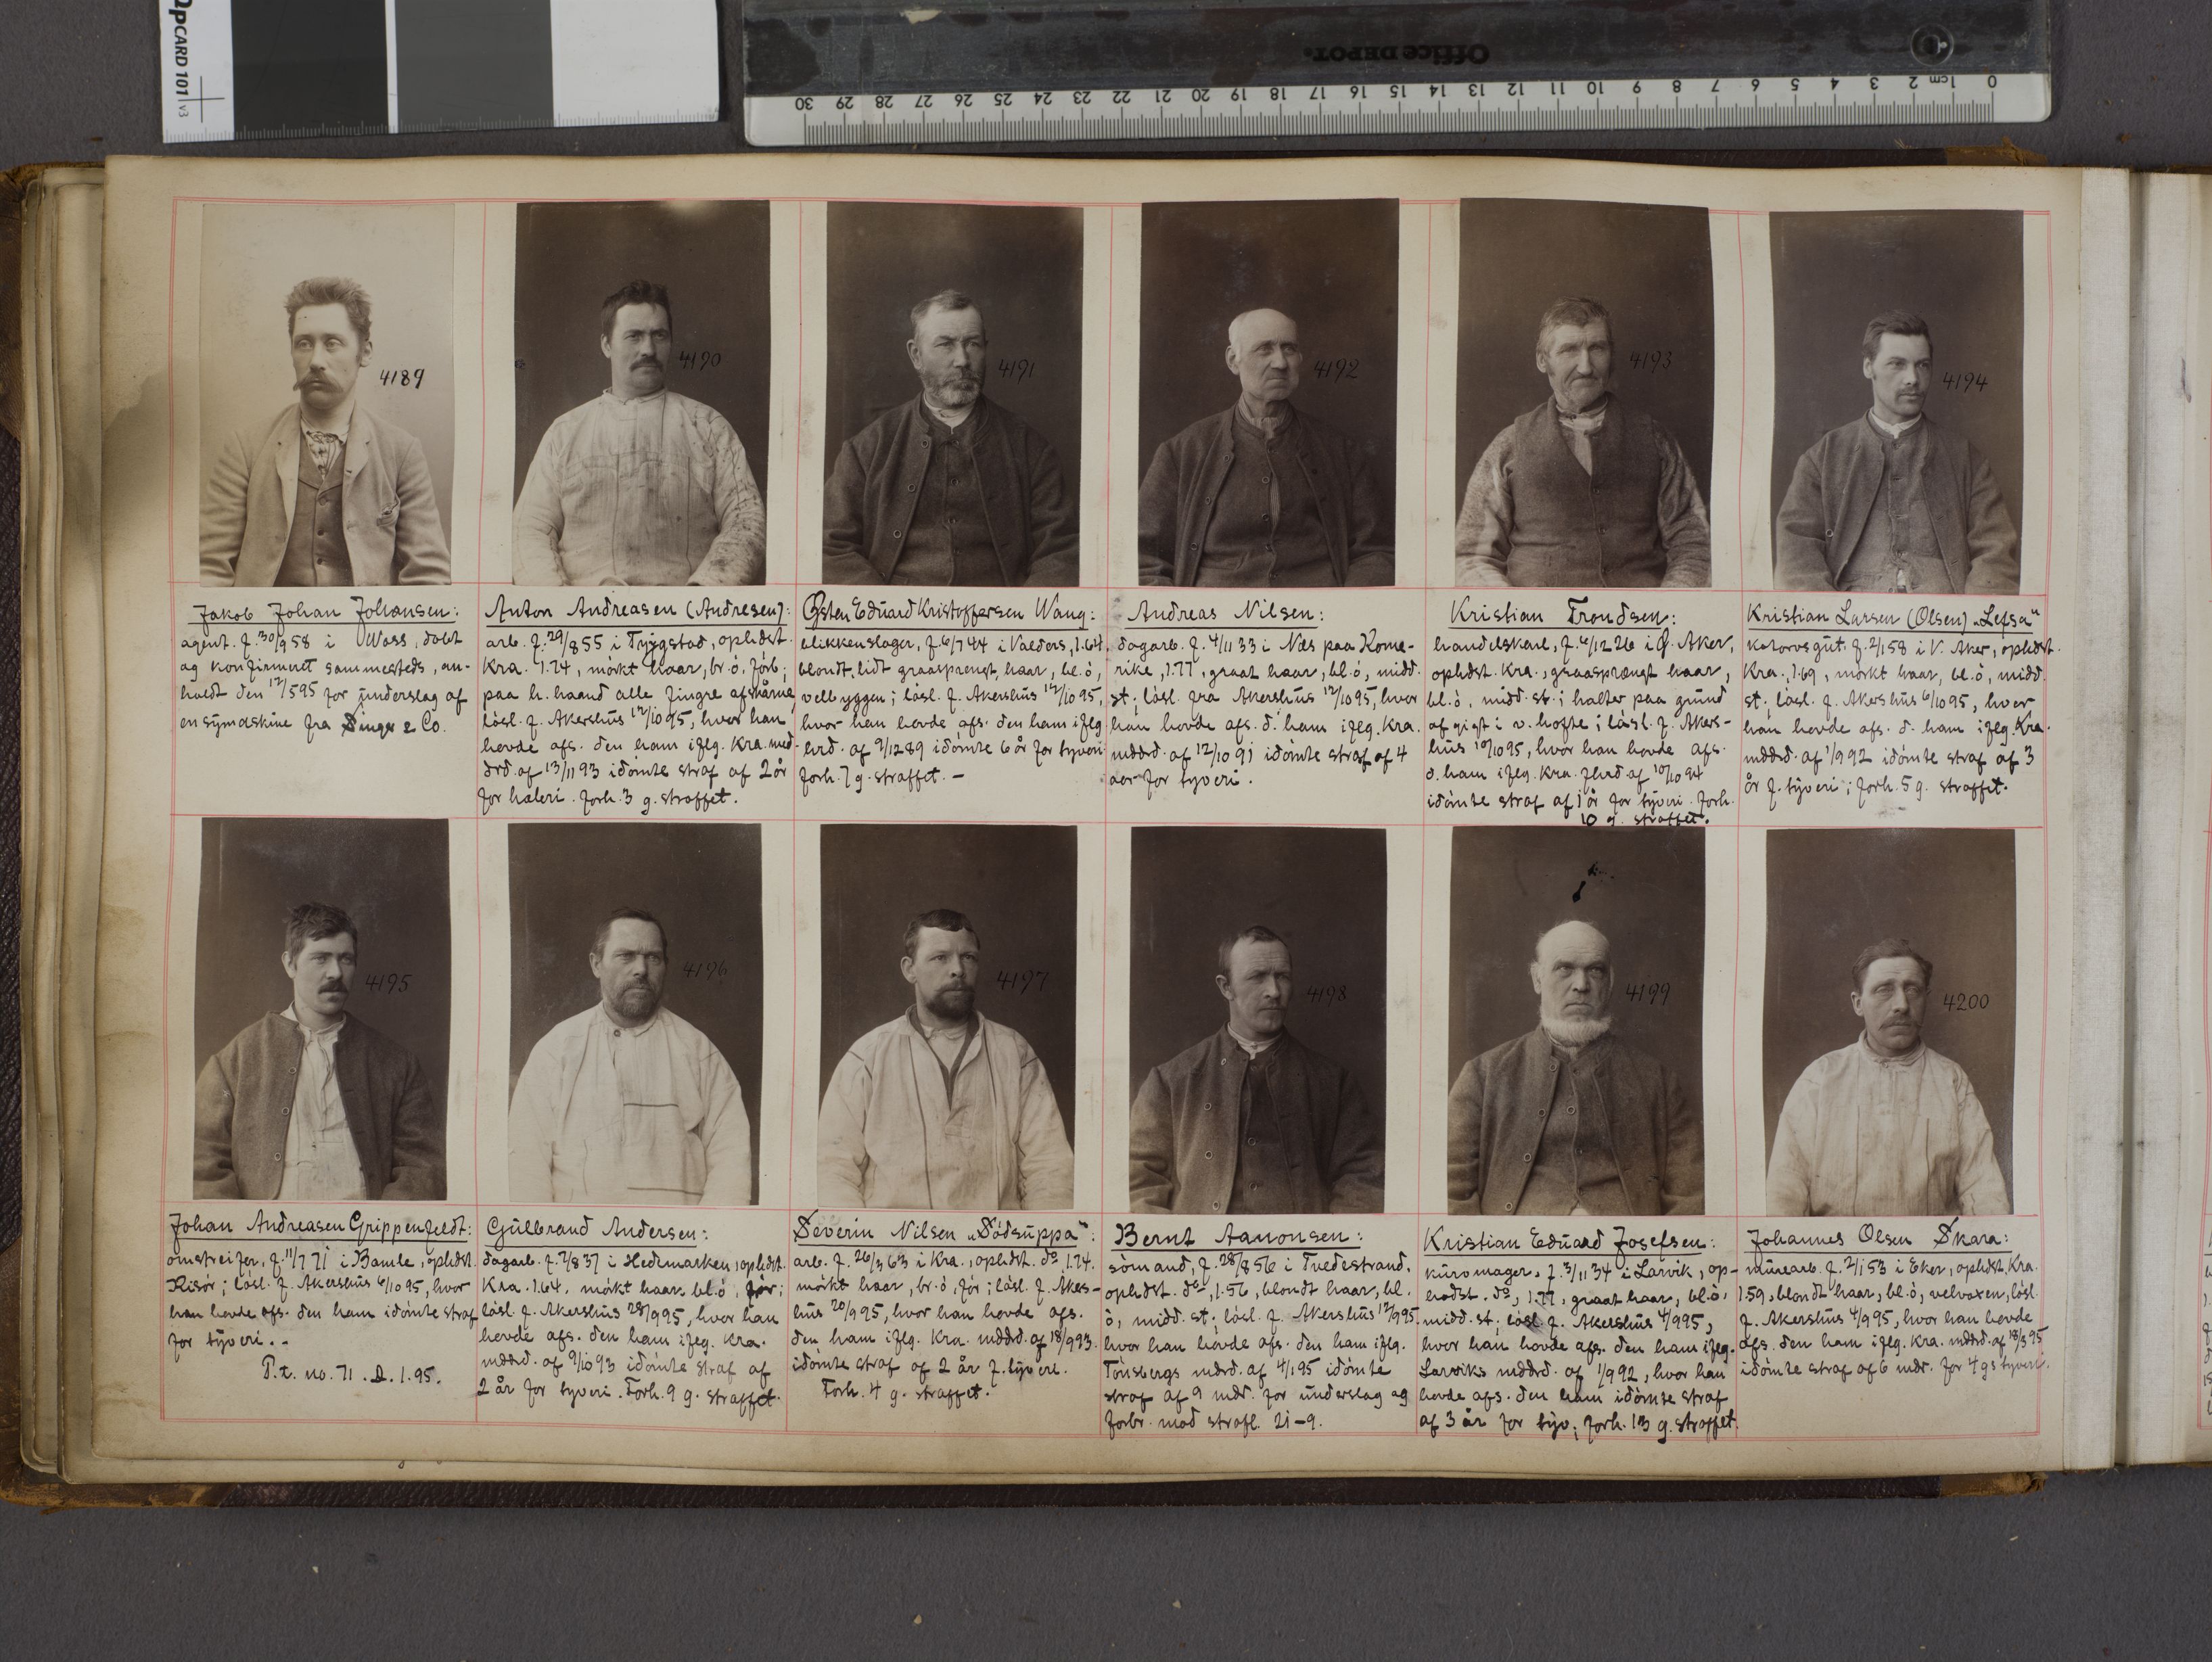 OpCARD 101 v3
Office DEPOT
0 1cm 2 3 4 5 6 7 8 9 10 11 12 13 14 15 16 17 18 19 20 21 22 23 24 25 26 27 28 29 30
4189
4190
4191
4192
4193
4194
Jakob Johan Johansen:
agent. f. 30/9 58 i Woss, döbt
og konfirmeret sammesteds, an-
holdt den 12/5 95 for underslag af
en symaskine fra Singer & Co.
Anton Andreasen (Andresen):
arb. f. 29/8 55 i Trygstad, oplidst.
Kra. 1.74, mörkt haar, br. ö. förb;
paa h. haand alle fingre afskårne
lösl. f. Akershus 12/10 95, hvor han
hovde afs. den ham iflg. Kra. med-
drd. af 13/11 93 idömte straf af 2 år
for hæleri. forh. 3 g. straffet.
Östen Eduard Kristoffersen Wang:
blikkenslager, f. 6/7 44 i Valders, 1.64
blondt, lidt graasprengt haar, bl. ö,
velbyggen; lösl. f. Akershus 12/10 95,
hvor han hovde afs. den ham iflg
hrd. af 9/12 89 idömte 6 år for tyveri
forh. 7 g. straffet. –
Andreas Nilsen:
dagarb. f. 4/11 33 i Næs paa Rome-
rike, 1.77, graat haar, bl. ö, midd.
st; lösl. fra Akershus 12/10 95, hvor
han hovde afs. d. ham iflg. Kra.
mddrd. af 12/10 91 idömte straf af 4
aar for tyveri.
Kristian Trondsen:
handelskarl, f. 4/12 26 i Ö. Aker,
oplidst. Kra., graasprængt haar,
bl. ö, midd. st.; halter paa grund
af gigt i v. hofte; lösl. f. Akers-
hus 10/10 95, hvor han hovde afs.
d. ham iflg. Kra. flrd. af 10/10 94
idömte straf af 1 år for tyveri. forh.
10 g. straffet.
Kristian Larsen (Olsen) „Lefsa“
katorvsgut. f. 2/1 58 i V. Aker, oplidst.
Kra., 1.69, mörkt haar, bl. ö, midd.
st. lösl. f. Akershus 6/10 95, hvor
han hovde afs. d. ham iflg. Kra.
mddrd. af 1/9 92 idömte straf af 3
år f. tyveri; forh. 5 g. straffet.
4195
4196
4197
4198
4199
4200
Johan Andreasen Grippenfeldt:
omstreifer, f. 11/7 71 i Bamle, oplidst
Risör; lösl. f. Akershus 4/10 95, hvor
han hovde afs. den ham idömte straf
for tyveri. –
P.t. no. 71. D. 1. 95.
Gulbrand Andersen:
dagarb. f. 7/8 37 i Hedmarken, oplidst.
Kra. 1.64. mörkt haar, bl. ö, för;
lösl. f. Akershus 28/9 95, hvor han
hovde afs. den ham iflg. Kra.
mddrd. af 9/10 93 idömte straf af
2 år for tyveri. Forh. 9 g. straffet.
Severin Nilsen „Södsuppa“:
arb. f. 26/3 63 i Kra., oplidst. do 1.74.
mörkt haar, br. ö, för; lösl. f. Akers-
hus 20/9 95, hvor han hovde afs.
den ham iflg. Kra. mddrd. af 18/9 93
idömte straf af 2 år f. tyveri.
Forh. 4 g. straffet.
Bernt Aanonsen:
sömand, f. 28/8 56 i Tvedestrand,
oplidst. do, 1.56, blondt haar, bl.
ö, midd. st; lösl. f. Akershus 12/9 95
hvor han hovde afs. den ham iflg.
Tönsbergs mdrd. af 4/1 95 idömte
straf af 9 mdr. for underslag og
forbr. mod strafl. 21-9.
Kristian Eduard Josefsen:
kurvmager, f. 3/11 34 i Larvik, op-
lidst. do, 1.77, graat haar, bl. ö,
midd. st; lösl. f. Akershus 4/9 95,
hvor han hovde afs. den ham iflg.
Larviks mddrd. af 1/9 92, hvor han
hovde afs. den ham idömte straf
af 3 år for tyv; forh. 13 g. straffet.
Johannes Olsen Skara:
murarb. f. 2/1 53 i Eker, oplidst. Kra.
1.59, blondt haar, bl. ö, velvoxen, lösl.
f. Akershus 4/9 95, hvor han hovde
afs. den ham iflg. Kra. mddrd. af 18/3 95
idömte straf af 6 mdr. for 4 gs tyveri.